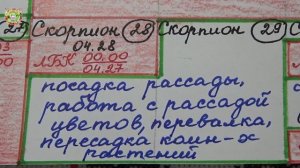 27 Скорпион 28 Скорпион 29
04.28
ЛБК 00.00
04.27
посадка рассады,
работа с рассадой
цветов, перевалка,
пересадка комн-х
растений